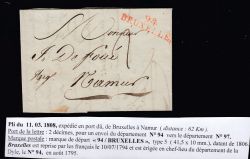 94
BRUXELLES
Monsieur
Namur
Pli du 11. 03. 1808, expédié en port dû, de Bruxelles à Namur ( distance : 62 Km ).
Port de la lettre : 2 décimes, pour un envoi du département N° 94 vers le département N° 97.
Marque postale : marque de départ « 94 / BRUXELLES », type 5 ( 41,5 x 10 mm.), datant de 1808
Bruxelles est reprise par les français le 10/07/1794 et est érigée en chef-lieu du département de la
Dyle, le N° 94, en août 1795.